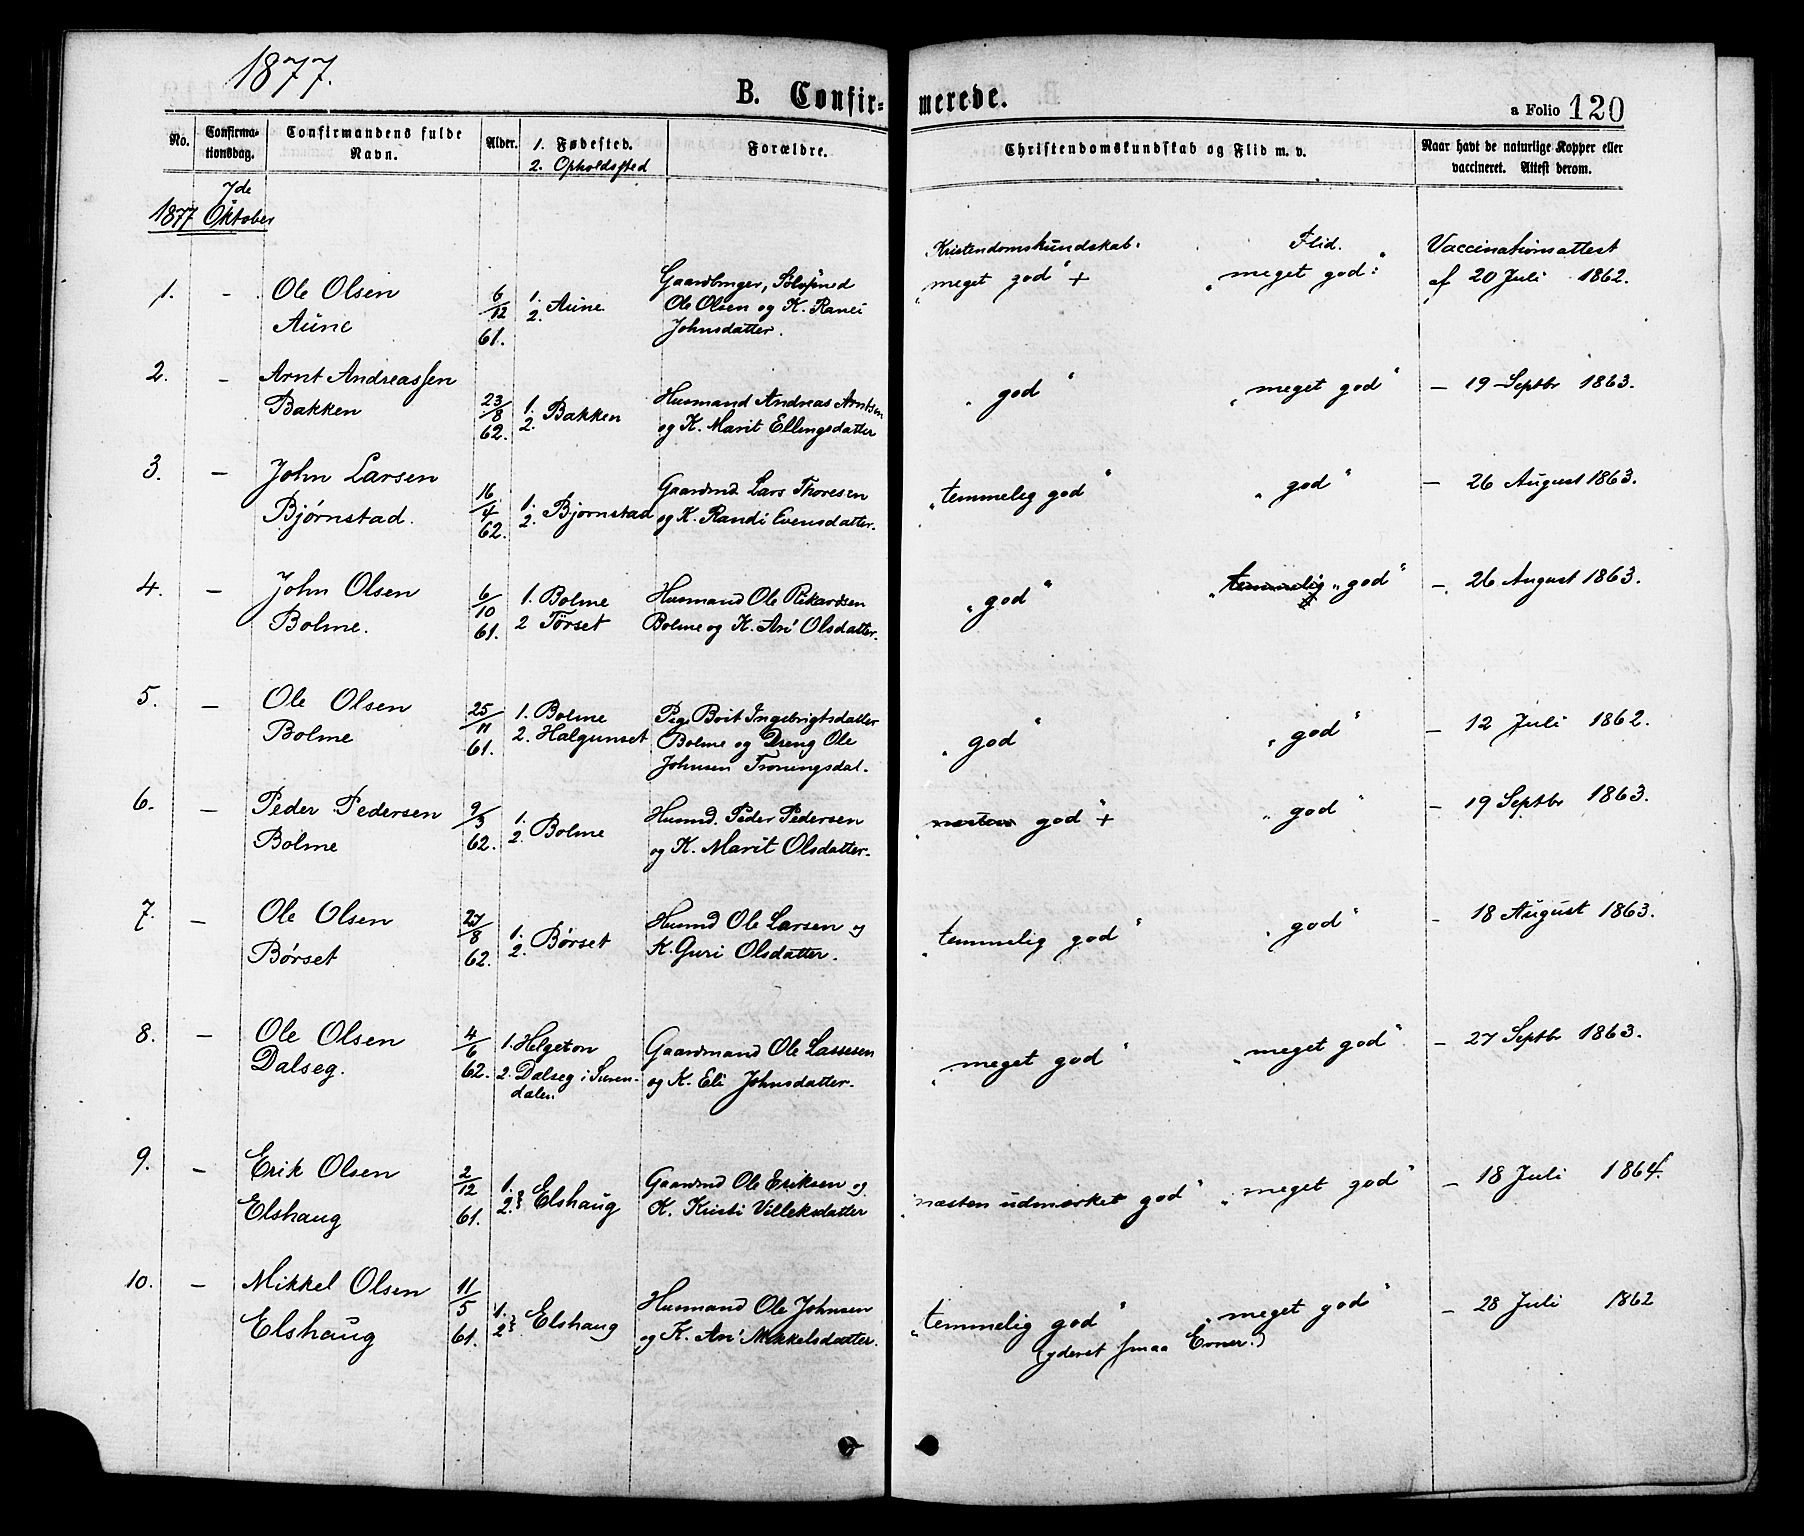 1877.
B. Confir-
merede.
a Folio 120
No.
Confirma-
tionsdag.
Confirmandens fulde
Navn.
Alder.
1. Fødested.
2. Opholdssted
Forældre.
Christendomskundskab og Flid m. v.
Naar havt de naturlige Kopper eller
vaccineret. Attest derom.
7de
1877 Oktober
Kristendomskundskab.
Flid.
Vaccinationsattest
1. - Ole Olsen
Aune
6/12
61.
1.
2. Aune.
Ole Olsen og K. Ranei
Johnsdatter.
"meget god" +
"meget god"
af 20 Juli 1862.
2. - Arnt Andreassen
Bakken
23/8
62.
1.
2. Bakken
Husmand Andreas Arntsen
og K. Marit Ellingsdatter
"god"
"meget god"
- 19 Septbr 1863.
3. - John Larsen
Bjørnstad.
16/4
62.
1.
2. Bjørnstad
Gaardmd. Lars Thoresen
og K. Randi Evensdatter.
"temmelig god"
"god"
- 26 August 1863.
4. - John Olsen
Bolme.
6/10
61.
1. Bolme
2 Torset
Husmand Ole Rikardsen
Bolme og K. Ari Olsdatter.
"god"
"temmelig "god"
- 26 August 1863.
5. - Ole Olsen
Bolme
25/11
61.
1. Bolme
2. Halgunset
Pige Brit Ingebrigtsdatter
Bolme og Dreng Ole
Johnsen Troningsdal.
"god"
"god"
- 12 Juli 1862.
6. - Peder Pedersen
Bolme
9/3
62.
1.
2. Bolme
Husmd. Peder Pedersen
og K. Marit Olsdatter.
"næsten god" +
"god"
- 19 Septbr 1863.
7. - Ole Olsen
Børset
27/8
62.
1.
2. Børset
Husmd Ole Larsen og
K. Guri Olsdatter.
"temmelig god"
"god"
- 18 August 1863.
8. - Ole Olsen
Dalseg.
4/6
62.
1. Helgeton
2. Dalseg i Suren-
dalen
Gaardmand Ole Lassesen
og K. Eli Johnsdatter.
"meget god"
"meget god"
- 27 Septbr 1863.
9. - Erik Olsen
Elshaug
2/12
61.
1.
2. Elshaug
Gaardmd Ole Eriksen og
K. Kristi Villeksdatter
"næsten udmærket god"
"meget god"
- 18 Juli 1864.
10. - Mikkel Olsen
Elshaug
11/5
61.
1.
2. Elshaug
Husmand Ole Johnsen
og K. Ari Mikkelsdatter.
"temmelig god"
(yderst smaa Evner.)
"meget god"
- 28 Juli 1862